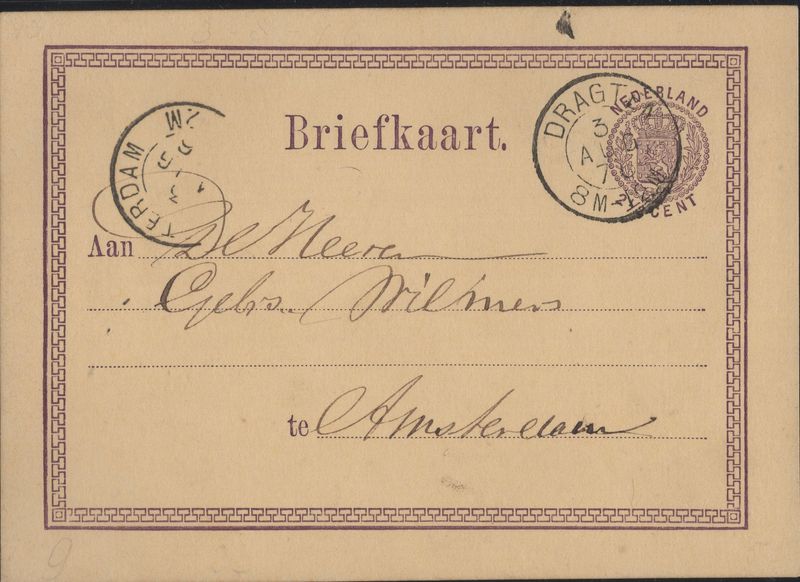 Briefkaart.
NEDERLAND
CENT
DRAGT
3
AUG
7
8M-
TERDAM
2M
Aan De Heeren
Gebrs. Wilmers
te Amsterdam
9